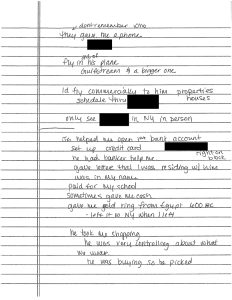 dont remember who
they gave me a phone
out of
fly in his plane
Gulfstream & a bigger one
Id fly commercially to him properties
schedule thru houses
only see in NY in person
Je helped me open 1st bank account
set up credit card
he had banker help me.
right on block
gave letter that I was residing w/
was in my name
paid for my school
sometimes gave me cash
gave me gold ring from Egypt 400 BC
- left it in NY when I left
he took me shopping
he was very controlling about what
we wore
he was buying so he picked